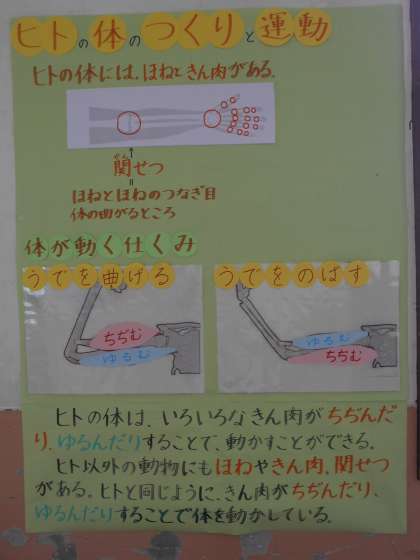 ヒトの体のつくりと運動
ヒトの体には、ほねときん肉がある。
かん
関せつ
=
ほねとほねのつなぎ目
体の曲がるところ
体が動く仕くみ
うでを曲げる
うでをのばす
ちぢむ
ゆるむ
ゆるむ
ちぢむ
ヒトの体は、いろいろなきん肉がちぢんだ
り、ゆるんだりすることで、動かすことができる。
ヒト以外の動物にもほねやきん肉、関せつ
がある。ヒトと同じように、きん肉がちぢんだり、
ゆるんだりすることで体を動かしている。